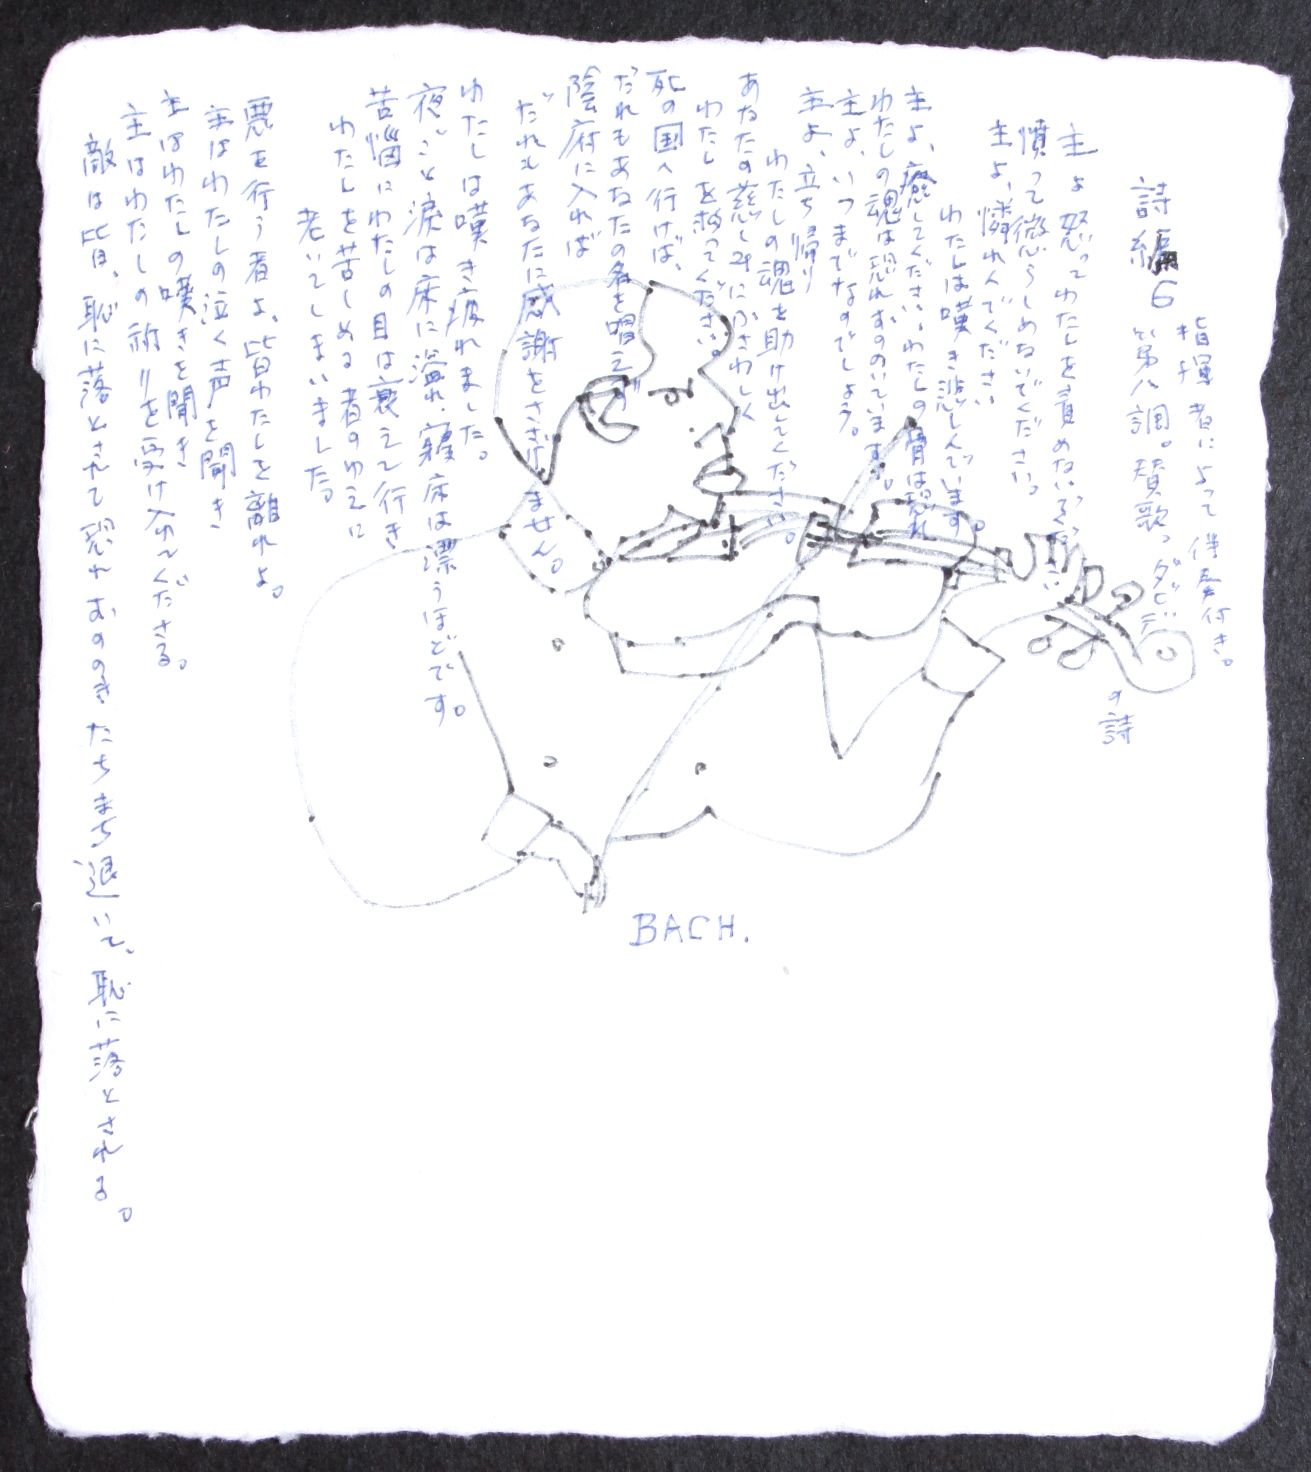 詩編6
指揮者によって伴奏付き。
第八調。賛歌。ダビデ
の詩
主よ怒ってわたしを責めないでください
憤って懲らしめないでください。
主よ、憐れんでください
わたしは嘆き悲しんでいます。
主よ、癒してください、わたしの骨は恐れ
わたしの魂は恐れおののいています。
主よ、いつまでなのでしょう。
主よ、立ち帰り
わたしの魂を助け出してください。
あなたの慈しみにふさわしく
わたしを救ってください。
死の国へ行けば、
だれもあなたの名を唱えず
陰府に入れば
だれもあなたに感謝をささげません。
わたしは嘆き疲れました。
夜ごと涙は床に溢れ、寝床は漂うほどです。
苦悩にわたしの目は衰えて行き
わたしを苦しめる者のゆえに
老いてしまいました。
悪を行う者よ、皆わたしを離れよ。
主はわたしの泣く声を聞き
主はわたしの嘆きを聞き
主はわたしの祈りを受け入れてくださる。
敵は皆、恥に落とされて恐れおののきたちまち退いて、恥に落とされる。
BACH.